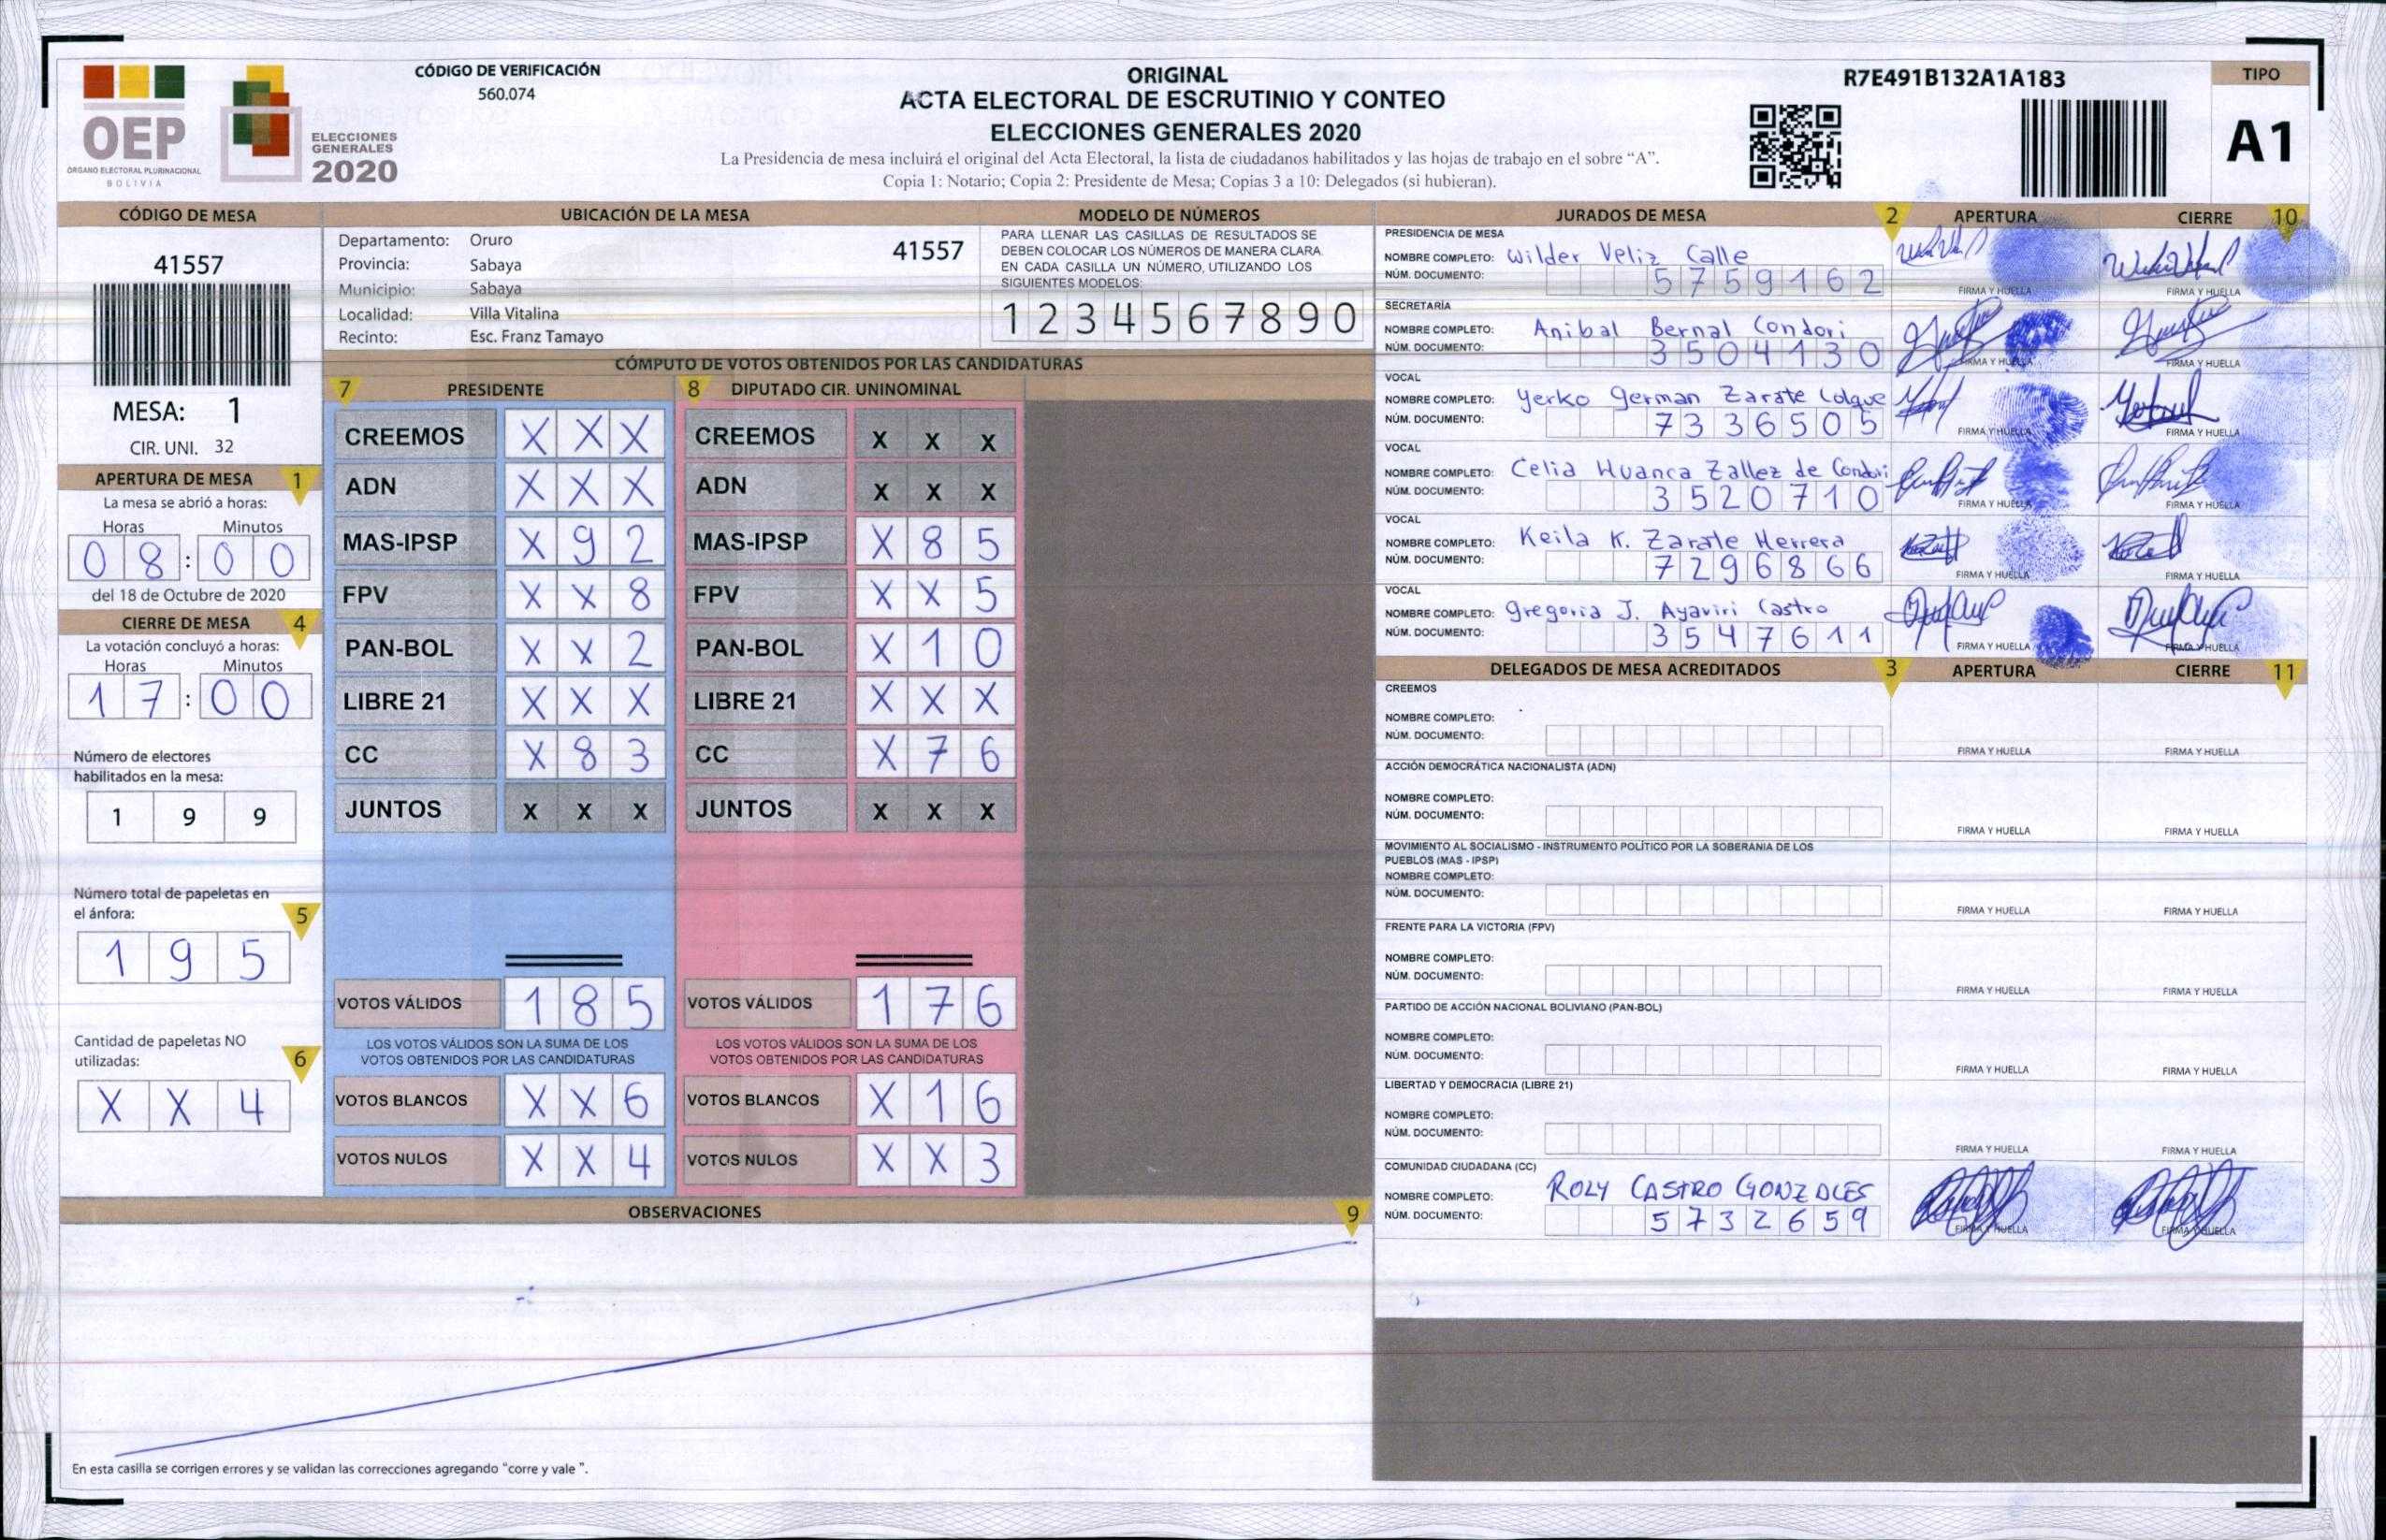 OEP
ÓRGANO ELECTORAL PLURINACIONAL
BOLIVIA
ELECCIONES
GENERALES
2020
CÓDIGO DE VERIFICACIÓN
560.074
ORIGINAL
ACTA ELECTORAL DE ESCRUTINIO Y CONTEO
ELECCIONES GENERALES 2020
La Presidencia de mesa incluirá el original del Acta Electoral, la lista de ciudadanos habilitados y las hojas de trabajo en el sobre “A”.
Copia 1: Notario; Copia 2: Presidente de Mesa; Copias 3 a 10: Delegados (si hubieran).
R7E491B132A1A183
TIPO
A1
CÓDIGO DE MESA
41557
MESA: 1
CIR. UNI. 32
APERTURA DE MESA 1
La mesa se abrió a horas:
Horas Minutos
0 8 : 0 0
del 18 de Octubre de 2020
CIERRE DE MESA 4
La votación concluyó a horas:
Horas Minutos
1 7 : 0 0
Número de electores
habilitados en la mesa:
1 9 9
Número total de papeletas en
el ánfora: 5
1 9 5
Cantidad de papeletas NO
utilizadas: 6
X X 4
UBICACIÓN DE LA MESA
Departamento: Oruro
41557
Provincia: Sabaya
Municipio: Sabaya
Localidad: Villa Vitalina
Recinto: Esc. Franz Tamayo
MODELO DE NÚMEROS
PARA LLENAR LAS CASILLAS DE RESULTADOS SE
DEBEN COLOCAR LOS NÚMEROS DE MANERA CLARA.
EN CADA CASILLA UN NÚMERO, UTILIZANDO LOS
SIGUIENTES MODELOS:
1 2 3 4 5 6 7 8 9 0
CÓMPUTO DE VOTOS OBTENIDOS POR LAS CANDIDATURAS
7 PRESIDENTE
CREEMOS X X X
ADN X X X
MAS-IPSP X 9 2
FPV X X 8
PAN-BOL X X 2
LIBRE 21 X X X
CC X 8 3
JUNTOS X X X
VOTOS VÁLIDOS 1 8 5
LOS VOTOS VÁLIDOS SON LA SUMA DE LOS
VOTOS OBTENIDOS POR LAS CANDIDATURAS
VOTOS BLANCOS X X 6
VOTOS NULOS X X 4
8 DIPUTADO CIR. UNINOMINAL
CREEMOS X X X
ADN X X X
MAS-IPSP X 8 5
FPV X X 5
PAN-BOL X 1 0
LIBRE 21 X X X
CC X 7 6
JUNTOS X X X
VOTOS VÁLIDOS 1 7 6
LOS VOTOS VÁLIDOS SON LA SUMA DE LOS
VOTOS OBTENIDOS POR LAS CANDIDATURAS
VOTOS BLANCOS X 1 6
VOTOS NULOS X X 3
OBSERVACIONES 9
En esta casilla se corrigen errores y se validan las correcciones agregando “corre y vale ”.
JURADOS DE MESA 2 APERTURA CIERRE 10
PRESIDENCIA DE MESA
NOMBRE COMPLETO: Wilder Veliz Calle
NÚM. DOCUMENTO: 5 7 5 9 1 6 2
FIRMA Y HUELLA FIRMA Y HUELLA
SECRETARÍA
NOMBRE COMPLETO: Anibal Bernal Condori
NÚM. DOCUMENTO: 3 5 0 4 1 3 0
FIRMA Y HUELLA FIRMA Y HUELLA
VOCAL
NOMBRE COMPLETO: Yerko German Zarate Colque
NÚM. DOCUMENTO: 7 3 3 6 5 0 5
FIRMA Y HUELLA FIRMA Y HUELLA
VOCAL
NOMBRE COMPLETO: Celia Huanca Zallez de Condori
NÚM. DOCUMENTO: 3 5 2 0 7 1 0
FIRMA Y HUELLA FIRMA Y HUELLA
VOCAL
NOMBRE COMPLETO: Keila K. Zarate Herrera
NÚM. DOCUMENTO: 7 2 9 6 8 6 6
FIRMA Y HUELLA FIRMA Y HUELLA
VOCAL
NOMBRE COMPLETO: Gregoria J. Ayaviri Castro
NÚM. DOCUMENTO: 3 5 4 7 6 1 1
FIRMA Y HUELLA FIRMA Y HUELLA
DELEGADOS DE MESA ACREDITADOS 3 APERTURA CIERRE 11
CREEMOS
NOMBRE COMPLETO:
NÚM. DOCUMENTO:
FIRMA Y HUELLA FIRMA Y HUELLA
ACCIÓN DEMOCRÁTICA NACIONALISTA (ADN)
NOMBRE COMPLETO:
NÚM. DOCUMENTO:
FIRMA Y HUELLA FIRMA Y HUELLA
MOVIMIENTO AL SOCIALISMO - INSTRUMENTO POLÍTICO POR LA SOBERANIA DE LOS
PUEBLOS (MAS - IPSP)
NOMBRE COMPLETO:
NÚM. DOCUMENTO:
FIRMA Y HUELLA FIRMA Y HUELLA
FRENTE PARA LA VICTORIA (FPV)
NOMBRE COMPLETO:
NÚM. DOCUMENTO:
FIRMA Y HUELLA FIRMA Y HUELLA
PARTIDO DE ACCIÓN NACIONAL BOLIVIANO (PAN-BOL)
NOMBRE COMPLETO:
NÚM. DOCUMENTO:
FIRMA Y HUELLA FIRMA Y HUELLA
LIBERTAD Y DEMOCRACIA (LIBRE 21)
NOMBRE COMPLETO:
NÚM. DOCUMENTO:
FIRMA Y HUELLA FIRMA Y HUELLA
COMUNIDAD CIUDADANA (CC)
NOMBRE COMPLETO: ROLY CASTRO GONZALES
NÚM. DOCUMENTO: 5 7 3 2 6 5 9
FIRMA Y HUELLA FIRMA Y HUELLA